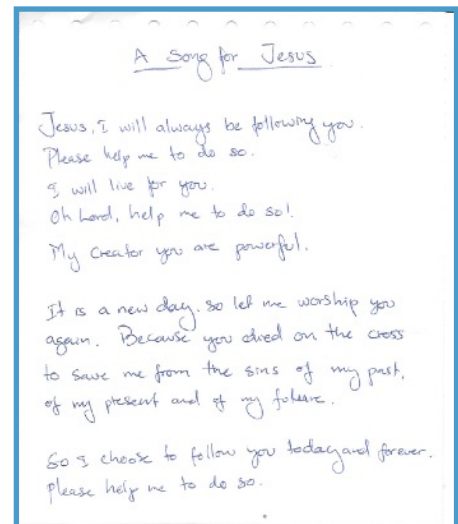 A Song for Jesus
Jesus, I will always be following you.
Please help me to do so.
I will live for you.
Oh Lord, help me to do so!
My Creator you are powerful.
It is a new day. so let me worship you
again. Because you died on the cross
to save me from the sins of my past,
of my present and of my future.
So I choose to follow you today and forever.
Please help me to do so.